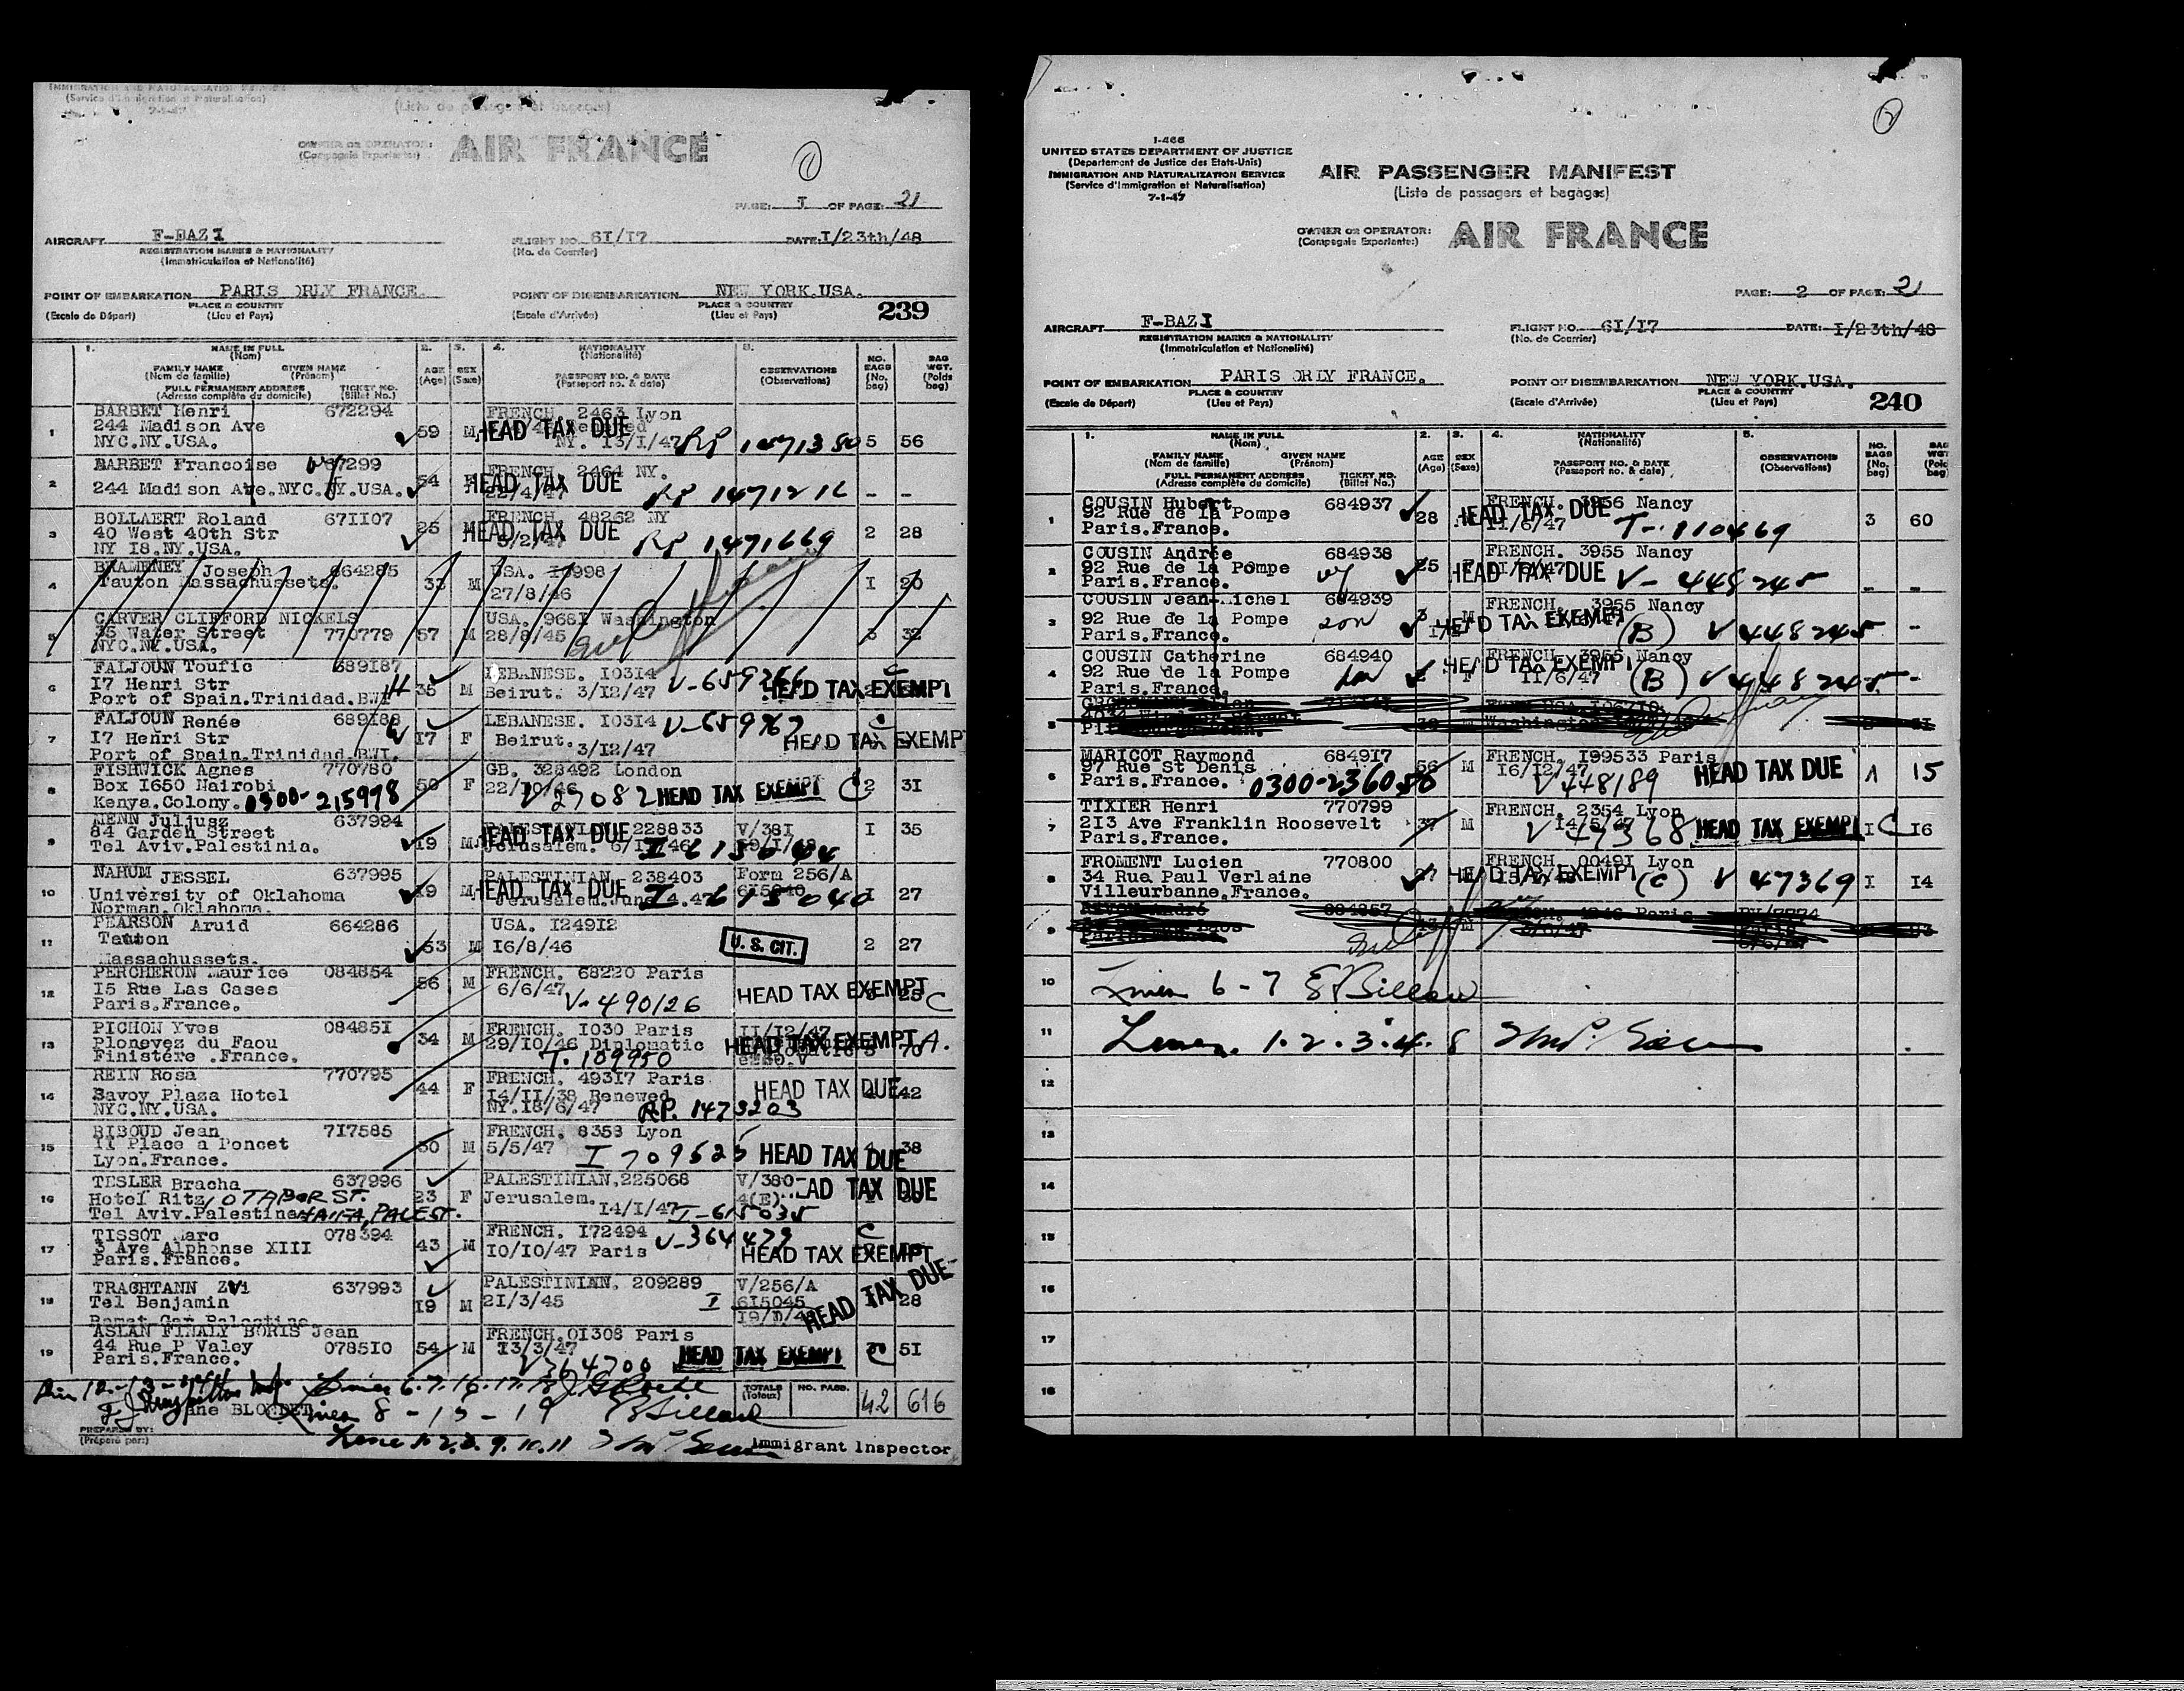 IMMIGRATION AND NATURALIZATION SERVICE
(Service d'Immigration et Naturalisation)
7-1-47
(Liste de passagers et bagages)
OWNER OR OPERATOR:
(Compagnie Exportante:)
AIR FRANCE
1
PAGE: I OF PAGE: 21
AIRCRAFT F-BAZI
REGISTRATION MARKS & NATIONALITY
(Immatriculation et Nationalité)
FLIGHT NO. 6I/I7
(No. de Courrier)
DATE: I/23th/48
POINT OF EMBARKATION PARIS ORLY FRANCE.
PLACE & COUNTRY
(Escale de Départ) (Lieu et Pays)
POINT OF DISEMBARKATION NEW YORK.USA.
PLACE & COUNTRY
(Escale d'Arrivée) (Lieu et Pays)
239
1. NAME IN FULL
(Nom)
FAMILY NAME GIVEN NAME
(Nom de famille) (Prénom)
FULL PERMANENT ADDRESS TICKET NO.
(Adresse complète du domicile) (Billet No.)
2. AGE
(Age)
3. SEX
(Sexe)
4. NATIONALITY
(Nationalité)
PASSPORT NO. & DATE
(Passeport no. & date)
5. OBSERVATIONS
(Observations)
NO. BAGS
(No. bag)
BAG WGT.
(Poids bag)
1 BARBET Henri 672294 59 M FRENCH. 2463 Lyon
244 Madison Ave
NYC.NY.USA. NY. I3/I/47 HEAD TAX DUE RP 1471380 5 56
2 BARBET Francoise 67299 54 FRENCH. 2464 NY.
244 Madison Ave.NYC.NY.USA. 22/4/47 HEAD TAX DUE RP 1471216 - -
3 BOLLAERT Roland 67II07 25 FRENCH 48262 NY
40 West 40th Str
NY I8.NY.USA. HEAD TAX DUE RP 1471669 2 28
4 Joseph 664285 33 M USA. I0998
Tauton Massachussets. 27/8/46 I 20
5 CARVER CLIFFORD NICKELS USA. 968I Washington
35 Water Street 770779 57 M 28/8/45 3 32
NYC.NY.USA.
6 FALJOUN Toufic 689I87 35 M LEBANESE. I03I4
I7 Henri Str Beirut. 3/I2/47 HEAD TAX EXEMPT
Port of Spain.Trinidad.BWI
7 FALJOUN Renée 689I88 I7 F LEBANESE. I03I4 V-659767
I7 Henri Str Beirut. 3/I2/47 HEAD TAX EXEMPT
Port of Spain.Trinidad.BWI.
8 FISHWICK Agnes 770780 50 F GB. 328492 London
Box I650 Nairobi 22/10/46 V 27082 HEAD TAX EXEMPT C 2 3I
Kenya.Colony. 0300-215978
9 MENN Juljusz 637994 I9 M PALESTINIAN 228833 V/38I I 35
84 Garden Street Jerusalem. HEAD TAX DUE I 615044
Tel Aviv.Palestinia.
10 NAHUM JESSEL 637995 I9 M PALESTINIAN. 238403 Form 256/A
University of Oklahoma HEAD TAX DUE I 615040 27
Norman.Oklahoma.
11 PEARSON Aruid 664286 53 M USA. I249I2
Tauton I6/8/46 U. S. CIT. 2 27
Massachussets.
12 PERCHERON Maurice 084854 56 M FRENCH. 68220 Paris
I5 Rue Las Cases 6/6/47 V-490126 HEAD TAX EXEMPT 25 C
Paris.France.
13 PICHON Yves 08485I 34 M FRENCH. I030 Paris II/I2/47
Plonevez du Faou 29/I0/46 Diplomatic HEAD TAX EXEMPT A.
Finistére .France. T. 109950
14 REIN Rosa 770795 44 F FRENCH. 493I7 Paris
Savoy Plaza Hotel I4/II/38 Renewed HEAD TAX DUE 42
NYC.NY.USA. NY.I8/6/47 RP. 1473203
15 RIBOUD Jean 7I7585 M FRENCH. 8353 Lyon
11 Place a Poncet 5/5/47 I 709625 HEAD TAX DUE 38
Lyon.France.
16 TESLER Bracha 637996 23 F PALESTINIAN.225068 V/380-
Hotel Ritz 10 TABOR ST. Jerusalem. 4(E) HEAD TAX DUE
Tel Aviv.Palestine HAIFA, PALEST. I4/I/47 I-615035
17 TISSOT Marc 078394 43 M FRENCH. I72494 V-364479 C
3 Ave Alphonse XIII I0/I0/47 Paris HEAD TAX EXEMPT
Paris.France.
18 TRACHTMANN ZVi 637993 I9 M PALESTINIAN. 209289 V/256/A
Tel Benjamin 2I/3/45 I 6I5045 HEAD TAX DUE 28
Ramat Gan Palestine
19 ASLAN FINALY BORIS Jean FRENCH.0I308 Paris
44 Rue P Valey 0785I0 54 M I3/3/47 5I
Paris.France. V364700 HEAD TAX EXEMPT
Lines 6.7.16.17.18
TOTALS
(Totaux)
NO. PASS.
42 616
Lines 8 - 15 - 19
PREPARED BY:
(Préparé par:)
Line 1. 2. 3. 9. 10. 11
Immigrant Inspector
2
I-466
UNITED STATES DEPARTMENT OF JUSTICE
(Departement de Justice des Etats-Unis)
IMMIGRATION AND NATURALIZATION SERVICE
(Service d'Immigration et Naturalisation)
7-1-47
AIR PASSENGER MANIFEST
(Liste de passagers et bagages)
OWNER OR OPERATOR:
(Compagnie Exportante:)
AIR FRANCE
PAGE: 2 OF PAGE: 21
AIRCRAFT F-BAZI
REGISTRATION MARKS & NATIONALITY
(Immatriculation et Nationalité)
FLIGHT NO. 6I/I7
(No. de Courrier)
DATE: I/23th/48
POINT OF EMBARKATION PARIS ORLY FRANCE.
PLACE & COUNTRY
(Escale de Départ) (Lieu et Pays)
POINT OF DISEMBARKATION NEW YORK.USA.
PLACE & COUNTRY
(Escale d'Arrivée) (Lieu et Pays)
240
1. NAME IN FULL
(Nom)
FAMILY NAME GIVEN NAME
(Nom de famille) (Prénom)
FULL PERMANENT ADDRESS TICKET NO.
(Adresse complète du domicile) (Billet No.)
2. AGE
(Age)
3. SEX
(Sexe)
4. NATIONALITY
(Nationalité)
PASSPORT NO. & DATE
(Passeport no. & date)
5. OBSERVATIONS
(Observations)
NO. BAGS
(No. bag)
1 COUSIN Hubert 684937 28 FRENCH. 3956 Nancy
92 Rue de la Pompe HEAD TAX DUE 3 60
Paris.France. II/6/47 T-110469
2 COUSIN Andrée 684938 25 FRENCH. 3955 Nancy
92 Rue de la Pompe HEAD TAX DUE V-448245
Paris.France. - -
3 COUSIN Jean-Michel 684939 FRENCH. 3955 Nancy
92 Rue de la Pompe son HEAD TAX EXEMPT (B) V 448245 -
Paris.France.
4 COUSIN Catherine 684940 FRENCH. 3955 Nancy
92 Rue de la Pompe F II/6/47 HEAD TAX EXEMPT (B) V 448245 -
Paris.France.
5 Washington
6 MARICOT Raymond 6849I7 56 M FRENCH. I99533 Paris
97 Rue St Denis I6/I2/47 HEAD TAX DUE 1 15
Paris.France. 0300-236058 V 448189
7 TIXIER Henri 770799 37 M FRENCH. 2354 Lyon
2I3 Ave Franklin Roosevelt I4/5/47 V 47368 HEAD TAX EXEMPT I C I6
Paris.France.
8 FROMENT Lucien 770800 FRENCH. 0049I Lyon
34 Rue Paul Verlaine HEAD TAX EXEMPT (C) V 47369 I I4
Villeurbanne.France.
9 André 684857 M Paris
10 Lines 6 - 7
11 Lines. 1. 2. 3. 4. 8
12
13
14
15
16
17
18